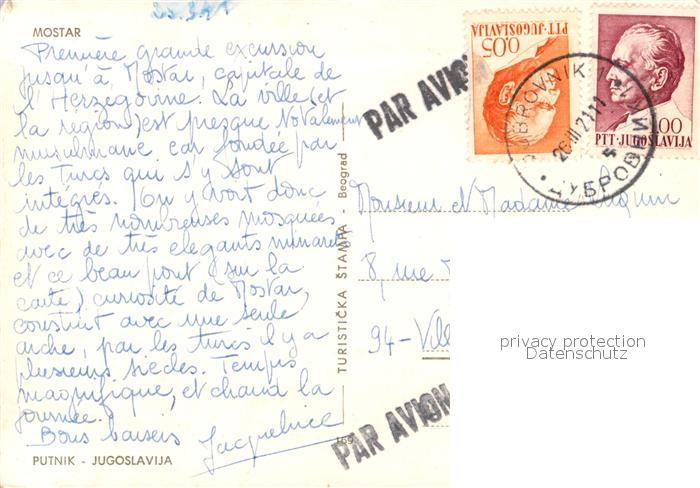 25.3.71
MOSTAR
Première grande excursion
jusqu'à Mostar, capitale de
l'Herzégovine. La ville (et
la région) est presque totalement
musulmane car fondée par
les turcs qui s'y sont
intégrés. On y voit donc
de très nombreuses mosquées
avec de très élégants minarets
et ce beau pont (sur la
carte) curiosité de Mostar,
construit avec une seule
arche, par les turcs il y a
plusieurs siècles. Temps
magnifique, et chaud la
journée.
Bons baisers Jacqueline
PUTNIK - JUGOSLAVIJA
TURISTIČKA ŠTAMPA - Beograd
PAR AVION
PTT-JUGOSLAVIJA
0.05
1.00
PTT-JUGOSLAVIJA
DUBROVNIK 1
26.III.71
ДУБРОВНИК
Monsieur et Madame
8, rue
94-Vill
PAR AVION
privacy protection
Datenschutz